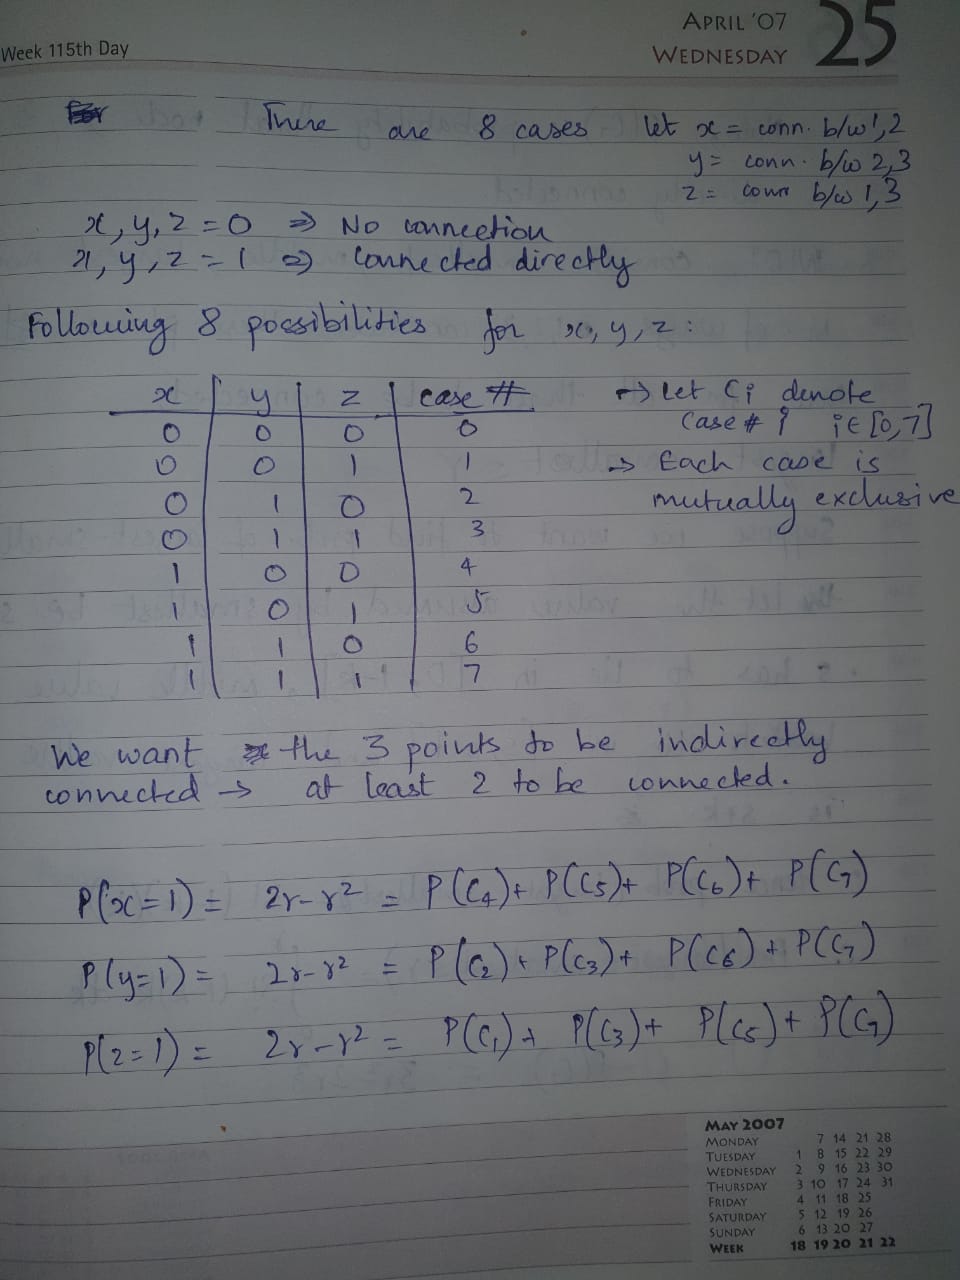 APRIL '07
25
Week 115th Day
WEDNESDAY
There are 8 cases let x = conn. b/w 1,2
y = conn. b/w 2,3
z = conn b/w 1,3
x, y, z = 0 ⇒ No connection
x, y, z = 1 ⇒ Connected directly
Following 8 possibilities for x, y, z :
x | y | z | case #
0 0 0 0
0 0 1 1
0 1 0 2
0 1 1 3
1 0 0 4
1 0 1 5
1 1 0 6
1 1 1 7
→ Let Ci denote
Case # i i ∈ [0,7]
→ Each case is
mutually exclusive
We want the 3 points to be indirectly
connected → at least 2 to be connected.
P(x=1) = 2r-r² = P(C₄)+ P(C₅)+ P(C₆)+ P(C₇)
P(y=1) = 2r-r² = P(C₂)+ P(C₃)+ P(C₆)+ P(C₇)
P(z=1) = 2r-r² = P(C₁)+ P(C₃)+ P(C₅)+ P(C₇)
MAY 2007
MONDAY 7 14 21 28
TUESDAY 1 8 15 22 29
WEDNESDAY 2 9 16 23 30
THURSDAY 3 10 17 24 31
FRIDAY 4 11 18 25
SATURDAY 5 12 19 26
SUNDAY 6 13 20 27
WEEK 18 19 20 21 22